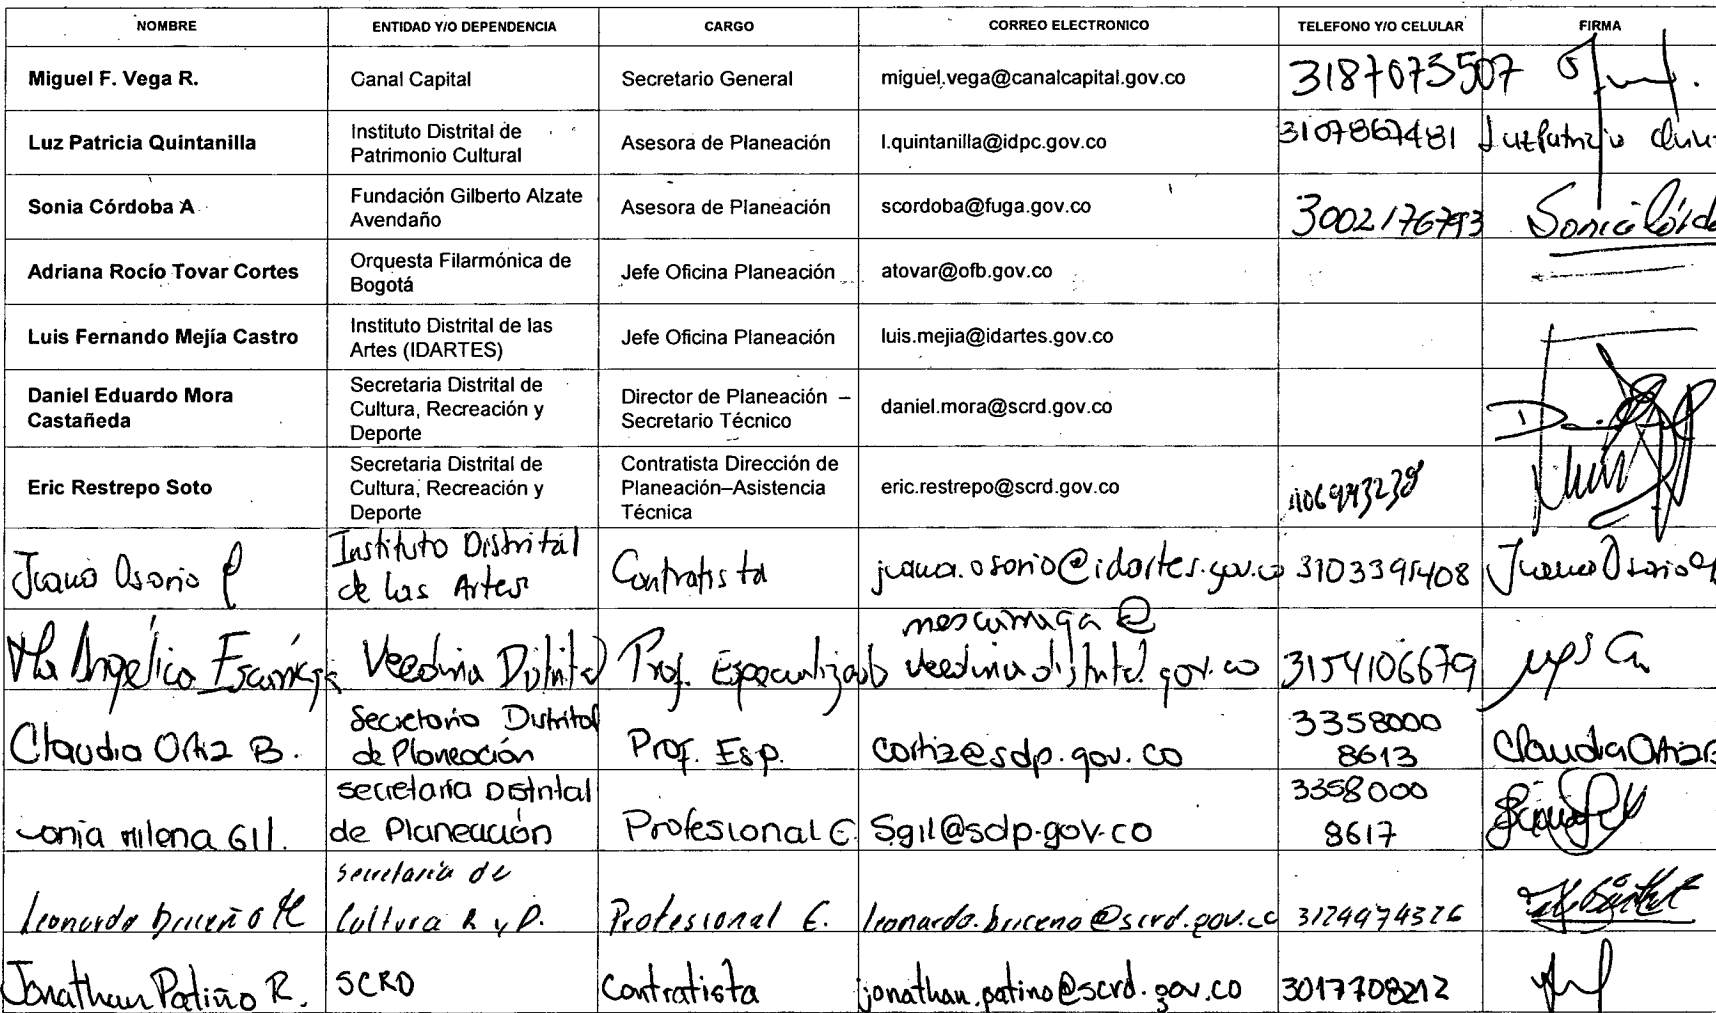 NOMBRE ENTIDAD Y/O DEPENDENCIA CARGO CORREO ELECTRONICO TELEFONO Y/O CELULAR FIRMA
Miguel F. Vega R. Canal Capital Secretario General miguel.vega@canalcapital.gov.co 3187073507
Luz Patricia Quintanilla Instituto Distrital de
Patrimonio Cultural Asesora de Planeación l.quintanilla@idpc.gov.co 3107867481 Luz Patricia
Sonia Córdoba A Fundación Gilberto Alzate
Avendaño Asesora de Planeación scordoba@fuga.gov.co 3002176793 Sonia Córdo
Adriana Rocío Tovar Cortes Orquesta Filarmónica de
Bogotá Jefe Oficina Planeación atovar@ofb.gov.co
Luis Fernando Mejía Castro Instituto Distrital de las
Artes (IDARTES) Jefe Oficina Planeación luis.mejia@idartes.gov.co
Daniel Eduardo Mora
Castañeda Secretaria Distrital de
Cultura, Recreación y
Deporte Director de Planeación –
Secretario Técnico daniel.mora@scrd.gov.co
Eric Restrepo Soto Secretaria Distrital de
Cultura, Recreación y
Deporte Contratista Dirección de
Planeación–Asistencia
Técnica eric.restrepo@scrd.gov.co
Juana Osorio P Instituto Distrital
de las Artes Contratista juana.osorio@idartes.gov.co 3103395408 Juana Osorio
Ma Angélica Escárraga Veeduria Distrital Prof. Especializado mescarraga@
veeduriadistrital.gov.co 3154106679
Claudia Ortiz B. Secretaria Distrital
de Planeación Prof. Esp. cortiz@sdp.gov.co 3358000
8613 Claudia Ortiz B
Sonia milena Gil. secretaria Distrital
de Planeación Profesional E. Sgil@sdp.gov.co 3358000
8617
leonardo briceño secretaria de
Cultura R y D. Profesional E. leonardo.briceno@scrd.gov.co 3124474326
Jonathan Patiño R. SCRD Contratista jonathan.patino@scrd.gov.co 3017708212